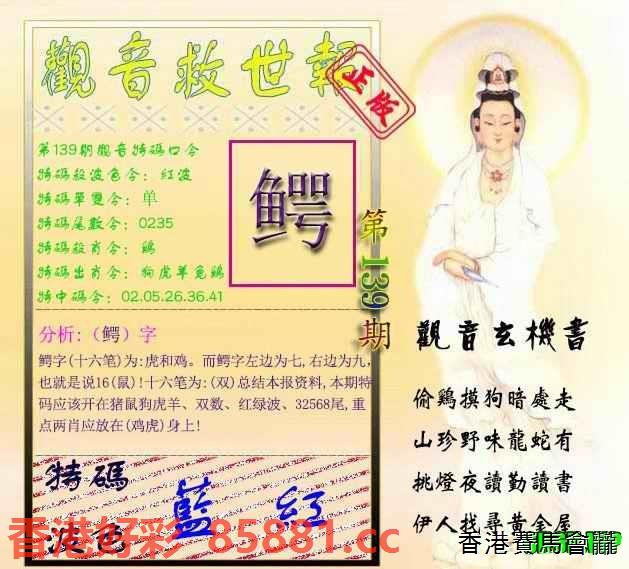 觀音救世報
正版
第139期觀音特碼口令
特碼殺波色令：红波
特碼單雙令：单
特碼尾數令：0235
特碼殺肖令：鷄
特碼出肖令：狗虎羊兔鷄
特中碼令：02.05.26.36.41
鳄
第139期
分析:（鳄）字
鳄字(十六笔)为:虎和鸡。而鳄字左边为七,右边为九,
也就是说16(鼠)!十六笔为:(双)总结本报资料,本期特
码应该开在猪鼠狗虎羊、双数、红绿波、32568尾,重
点两肖应放在(鸡虎)身上!
特碼
波色
藍 紅
香港好彩 85881.cc
觀音玄機書
偷鷄摸狗暗處走
山珍野味龍蛇有
挑燈夜讀勤讀書
伊人找尋黃金屋
香港賽馬會